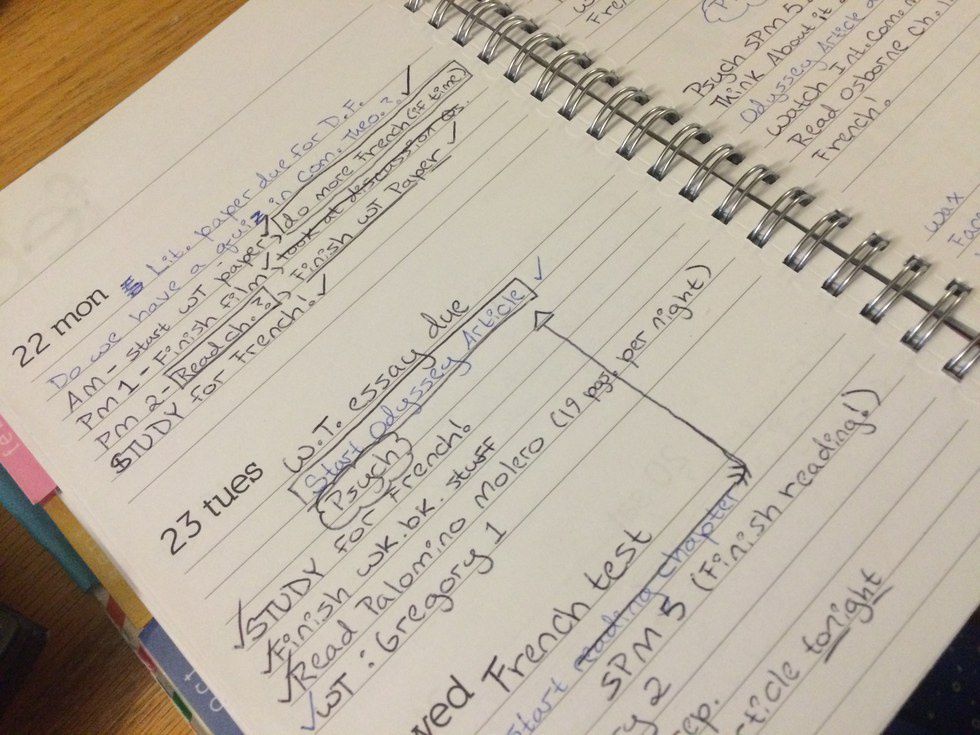 22 mon Lit. paper due for D.F.
Do we have a quiz in Com. Theo.? ✓
AM - Start WT paper, ✓ do more French (if time)
PM 1 - Finish film, ✓ look at discussion Qs.
PM 2 - Read ch. ??, Finish WT Paper ✓
STUDY for French! ✓
23 tues W.T. essay due
Start Odyssey Article ✓
Psych
✓ STUDY for French!
✓ Finish wk.bk. stuff
✓ Read Palomino Molero (19 pgs. per night)
✓ WT: Gregory 1
wed French test
Start reading chapter
SPM 5 (Finish reading!)
2
article tonight
Psych SPM 5
Think About it
Odyssey Article
Watch Int. Com.
Read Osborne Ch.
French!
wax